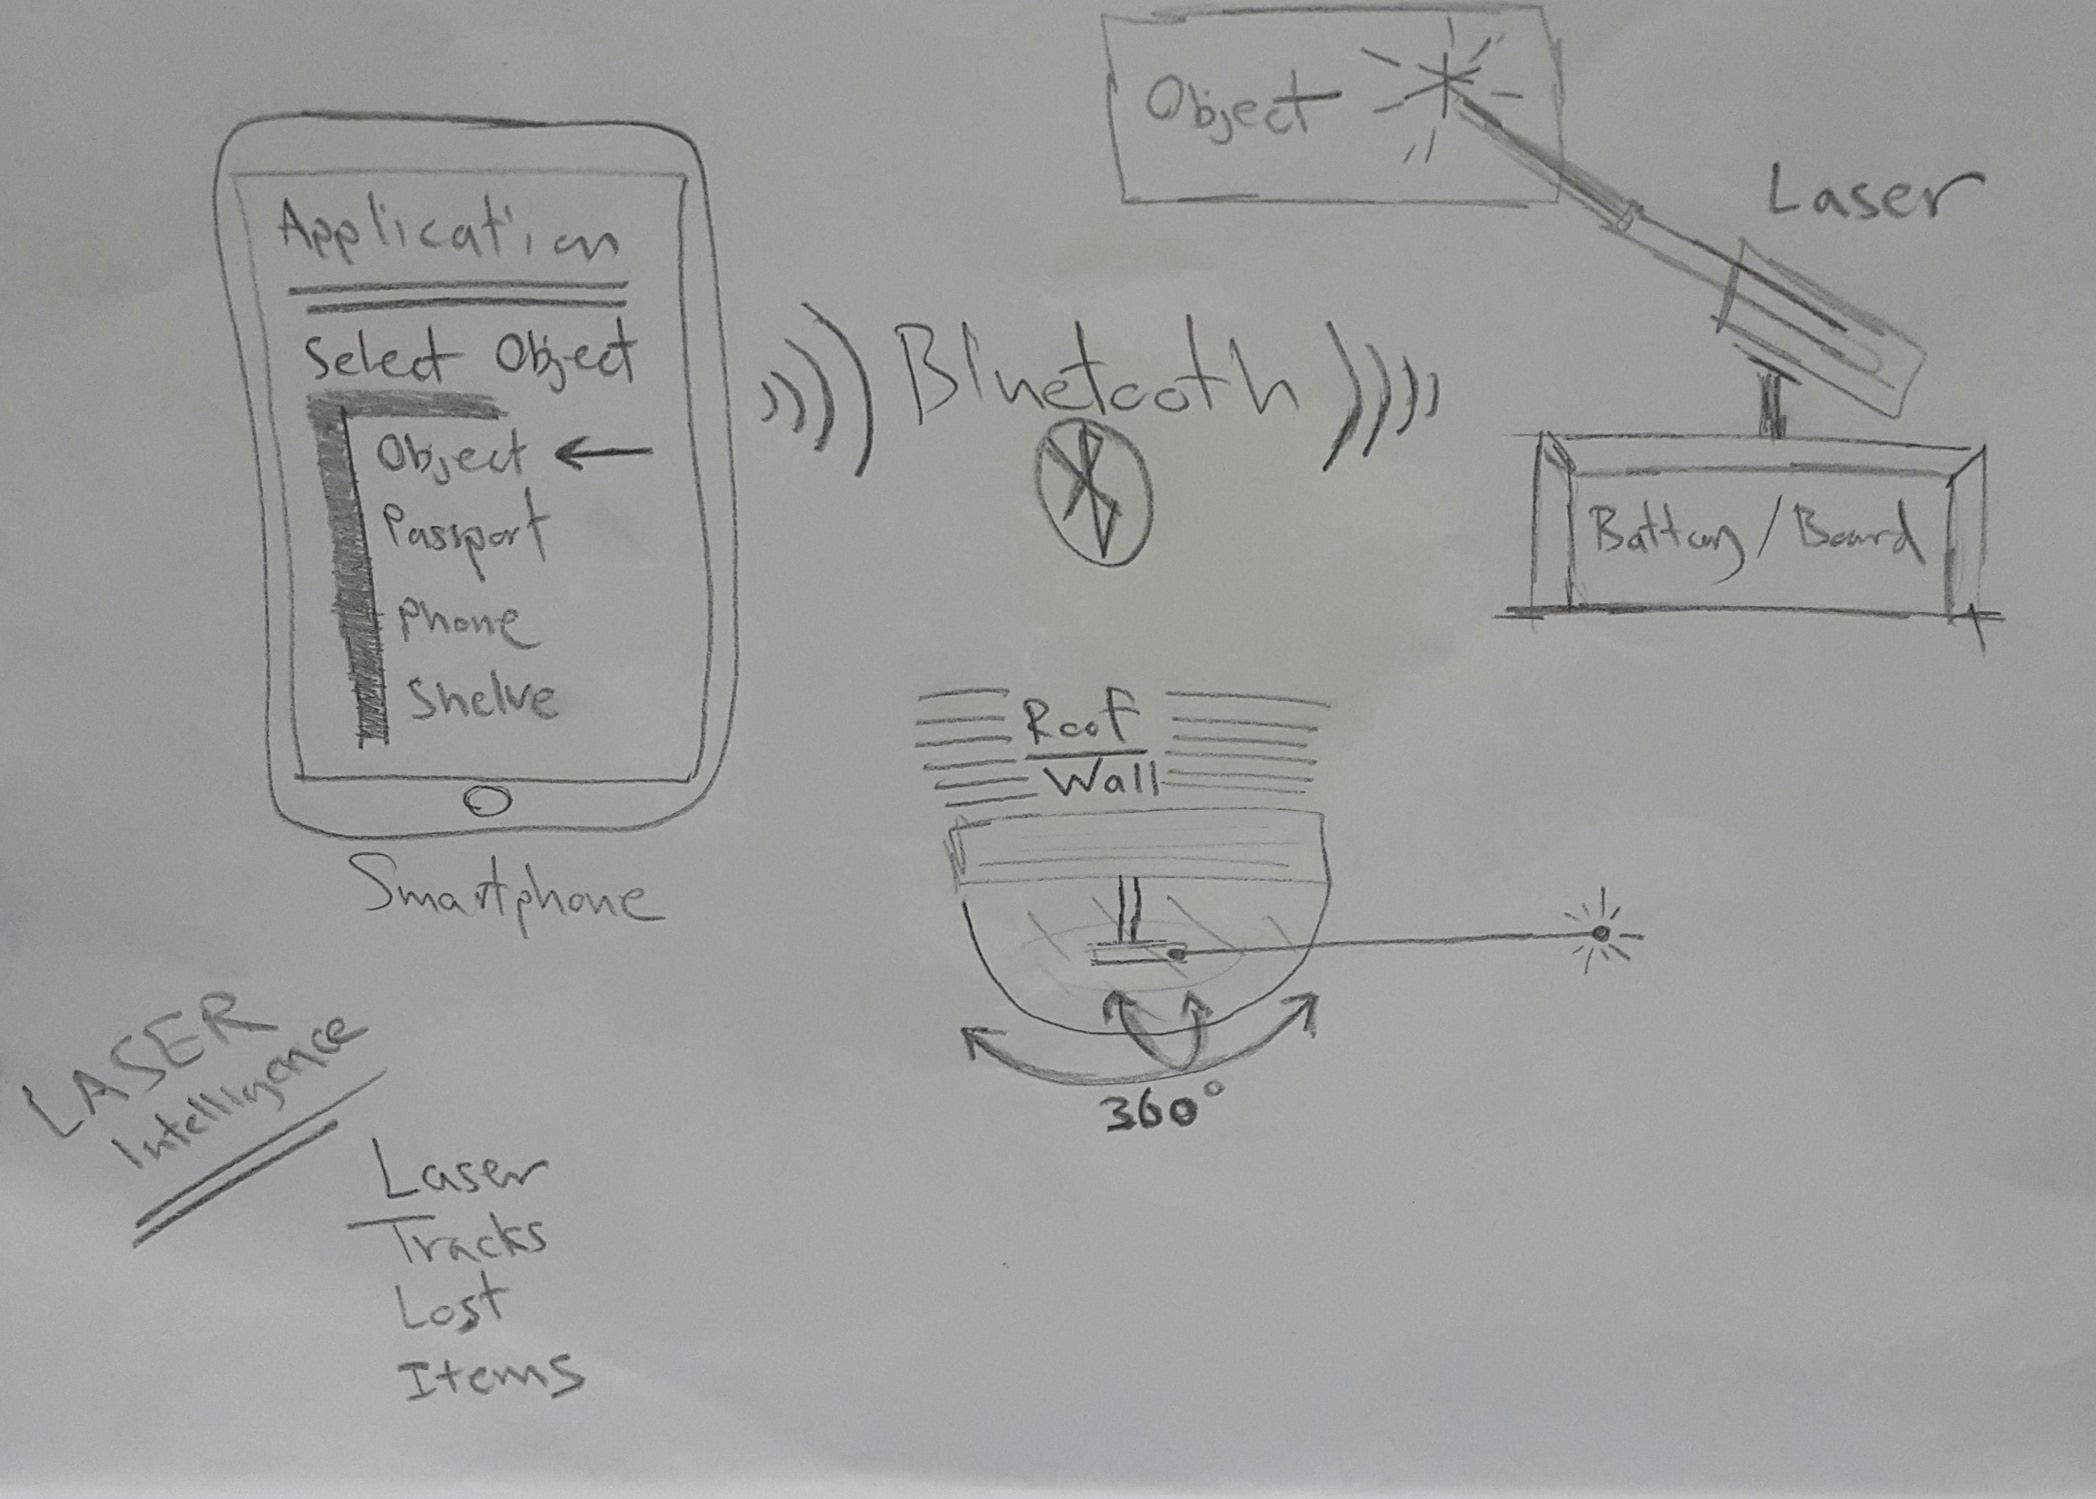 Object
Laser
Application
Select Object
Object
Passport
Phone
Shelve
Bluetooth
Battery/Board
Smartphone
Roof
Wall
360°
LASER
Intelligence
Laser
Tracks
Lost
Items